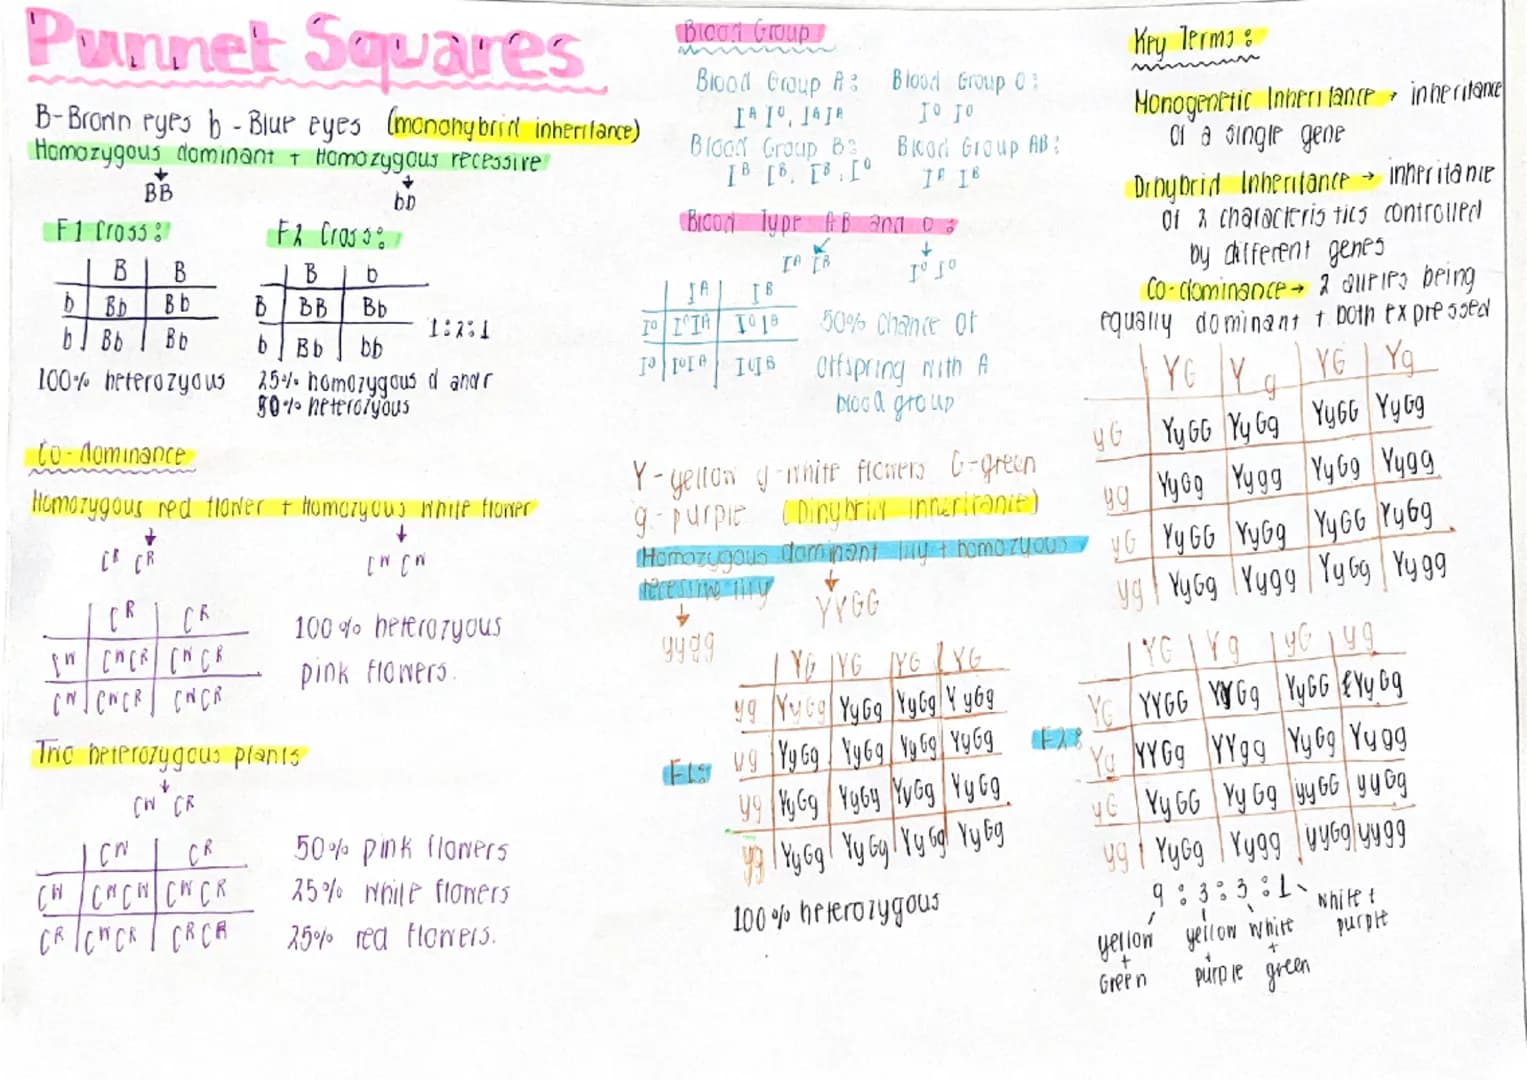 Punnet Squares
B-Brown eyes b-Blue eyes (monohybrid inheritance)
Homozygous dominant + Homozygous recessive
BB bb
F1 Cross: F2 Cross:
B B
b Bb Bb
b Bb Bb
100% heterozyous
B b
B BB Bb
b Bb bb
1:2:1
25% homozygous d and r
50% heterozyous
Co-dominance
Homozygous red flower + Homozyous white flower
CR CR CW CW
CR CR
CW CWCR CWCR
CW CWCR CWCR
100% heterozyous
pink flowers.
Two heterozygous plants
CW CR
CW CR
CW CWCW CWCR
CR CWCR CRCR
50% pink flowers
25% white flowers
25% red flowers.
Blood Group
Blood Group A: Blood Group O:
IA IO, IA IA IO IO
Blood Group B: Blood Group AB:
IB IB, IB, IO IA IB
Blood Type AB and O:
IA IB IO IO
IA IB
IO IOIA IOIB
IO IOIA IOIB
50% Chance of
offspring with A
blood group
Y-yellow y-white flowers G-green
g-purple (Dihybrid Inheritance)
Homozygous dominant lily + homozyous
recessive lily
YYGG
yygg
F1:
YG YG YG YG
yg YyGg YyGg YyGg YyGg
yg YyGg YyGg YyGg YyGg
yg YyGg YyGg YyGg YyGg
yg YyGg YyGg YyGg YyGg
100% heterozygous
Key Terms:
Monogenetic Inheritance → inheritance
of a single gene
Dihybrid Inheritance → inheritance
of 2 characteristics controlled
by different genes
Co-dominance → 2 alleles being
equally dominant + both expressed
YG Yg YG Yg
yG YyGG YyGg YyGG YyGg
yg YyGg Yygg YyGg Yygg
yG YyGG YyGg YyGG YyGg
yg YyGg Yygg YyGg Yygg
F2:
YG Yg yG yg
YG YYGG YYGg YyGG YyGg
Yg YYGg YYgg YyGg Yygg
yG YyGG YyGg yyGG yyGg
yg YyGg Yygg yyGg yygg
9:3:3:1
yellow + Green
yellow + purple
white + green
white + purple